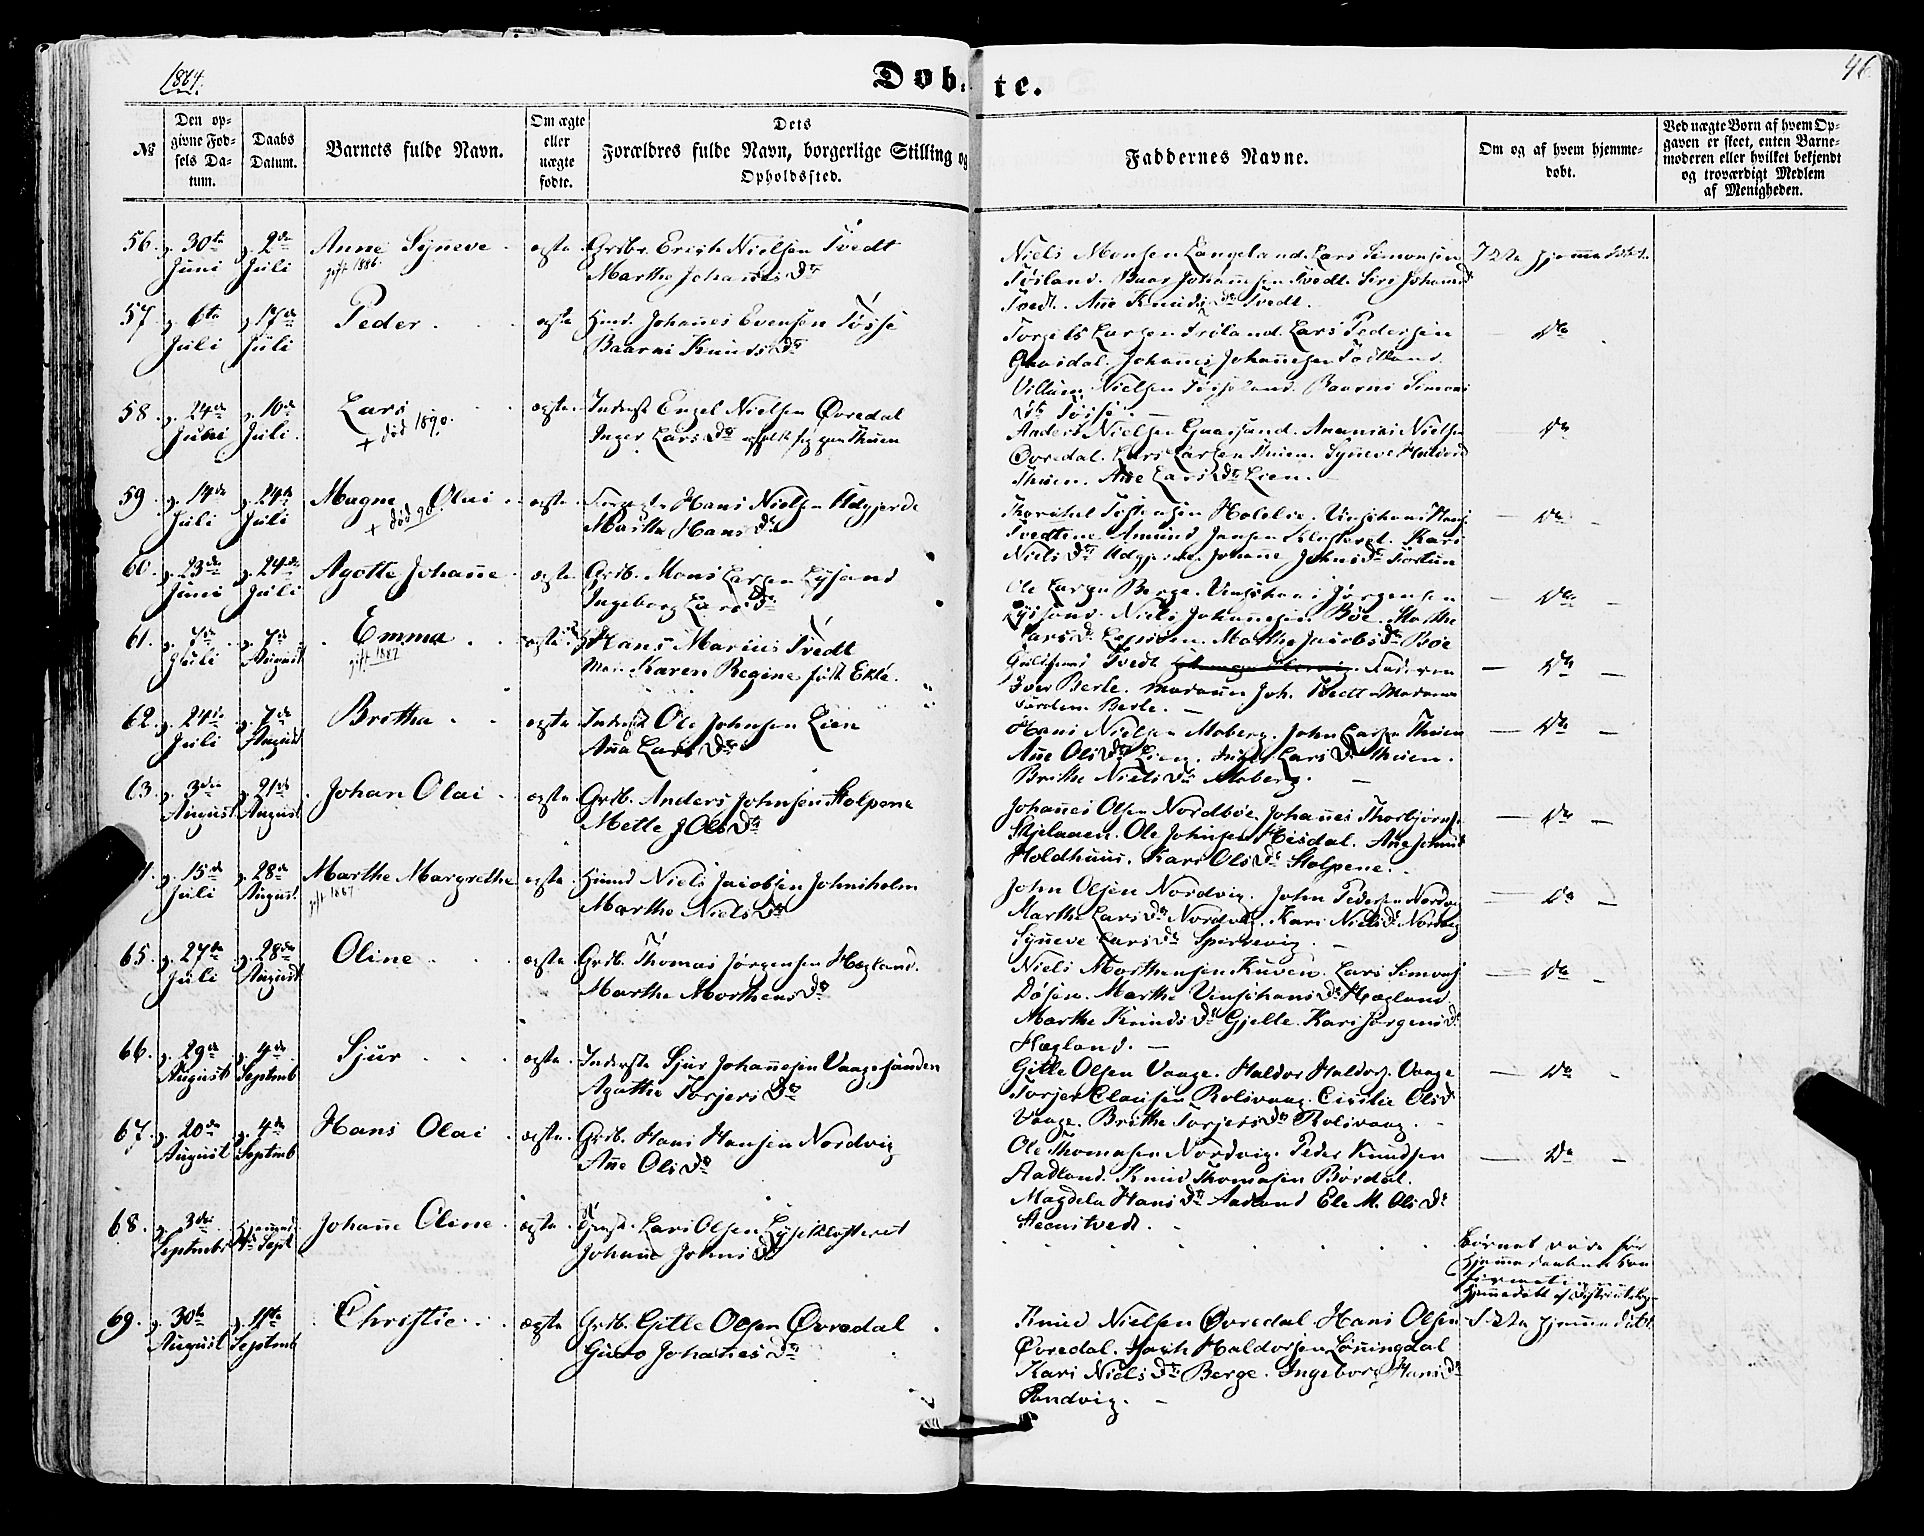 1864.
Døbte.
46
№
Den opgivne Fødsels Datum.
Daabs Datum.
Barnets fulde Navn.
Om ægte eller uægte fødte.
Dets Forældres fulde Navn, borgerlige Stilling og Opholdssted.
Faddernes Navne.
Om og af hvem hjemmedøbt.
Ved uægte Børn af hvem Opgaven er skeet, enten Barnemoderen eller hvilket bekjendt og troværdigt Medlem af Menigheden.
56. 30te Juni 2de Juli Anne Syneve ægte Grdbr. Erich Nielsen Tvedt
gift 1886. Marthe Johannes Dtr
Niels Monsen Langeland. Lars Simonsen
Tøsland. Baar Johannesen Tvedt. Siri Johannes
Tvedt. Ane Knuds Dtr Tvedt.
hjemmedøbt
57. 6te Juli 17de Juli Peder ægte Huusmd. Johanes Evensen Tøsse
Baarni Knuds Dtr
Torgils Larsen Lars Pedersen
Johannes Johannesen
Villum Nielsen Baarni Simons
Dtr Tøsse
Do
58. 24de Juni 10de Juli Lars ægte Inderst Engel Nielsen Øvredal
+ død 1890. Inger Lars Dtr
Anders Nielsen Ananias Nielsen
Øvredal. Lars Larsen Thuen. Syneve
Thuen. Ane Lars Dtr Lien.
Do
59. 14de Juli 24de Juli Magne Olai ægte Hans Nielsen Udgjerde
+ død 90. Marthe Hans Dtr
Holdlie.
Tvedtene. Amund Jansen Klosteret. Kari
Niels Dtr Udgjerde. Johanne Johns Dtr
Do
60. 23de Juni 24de Juli Agotte Johanne ægte Grdb. Mons Larsen Lysand
Ingeborg Lars Dtr
Ole Larsen Berge. Jørgensen
Lyssand. Niels Johannesen Bøe. Marthe
Lars Dtr Marthe Jacobs Dtr Bøe
Do
61. 7de Juli 7de August Emma ægte Hans Marius Tvedt
gift 1887 Karen Regine født Ekle.
Tvedt. Faderen
Iver Berle. Madame Joh. Tvedt. Madame
Berle.
Do
62. 24de Juli 7de August Britha ægte Inderst Ole Johnsen Lien
Anna Lars Dtr
Hans Nielsen Moberg. John Larsen Thuen
Ane Ols Dtr Lien. Lars Dtr Thuen.
Brithe Niels Dtr Moberg.
Do
63. 3die August 21de August Johan Olai ægte Grdb. Anders Johnsen Stolpene
Mette J Ols Dtr
Johanes Olsen Nordbøe. Johanes Thorbjørns.
Skjelaaen. Ole Johnsen Heisdal. Ane
Holdhuus. Kari Ols Dtr Stolpene.
Do
15de Juli 28de August Marthe Margrethe ægte Huusmd Niels Jacobsen Johnsholm
gift Marthe Niels Dtr
John Olsen Nordvig. John Pedersen Nordvig
Marthe Lars Dtr Nordvig. Kari Niels Dtr Nordvig
Syneve Lars Dtr Sperrevig.
Do
65. 27de Juli 28de August Oline ægte Grdb. Thomas Jørgensen Hegland.
Marthe Morthens Dtr
Niels Morthensen Kuven. Lars Simons.
Døsen. Marthe Dtr Hegland
Marthe Knuds Dtr Gjelle. Kari Jørgens Dtr
Hegland.
Do
66. 29de August 4de Septemb Sjur ægte Inderste Sjur Johanesen Vaagesanden
Agathe Torjers Dtr
Gitle Olsen Vaage. Haldor Haldors. Vaage
Torjer Clausen Rolsvaag. Cicilie Ols Dtr
Vaage. Brithe Torjers Dtr Rolsvaag.
Do
67. 20de August 4de Septemb Hans Olai ægte Grdb. Hans Hansen Nordvig
Ane Ols Dtr
Ole Thomasen Nordvig. Peder Knudsen
Aadland. Knud Thomasen Børdal.
Magdela Hans Dtr Aadland Ele M. Ols Dtr
Do
68. 3die Septemb Sept Johane Oline ægte Lars Olsen Lysekloster
Johane Johns Dtr
Barnet døde før
hjemmedaaben
69. 30te August 11te Septemb Christie ægte Grdb. Gitle Olsen Øvredal
Guro Johanes Dtr
Knud Nielsen Øvredal Hans Olsen
Øvredal. Haldorsen Lønningdal
Kari Niels Dtr Berge. Ingeborg Hans Dtr
Sandvig.
hjemmedøbt